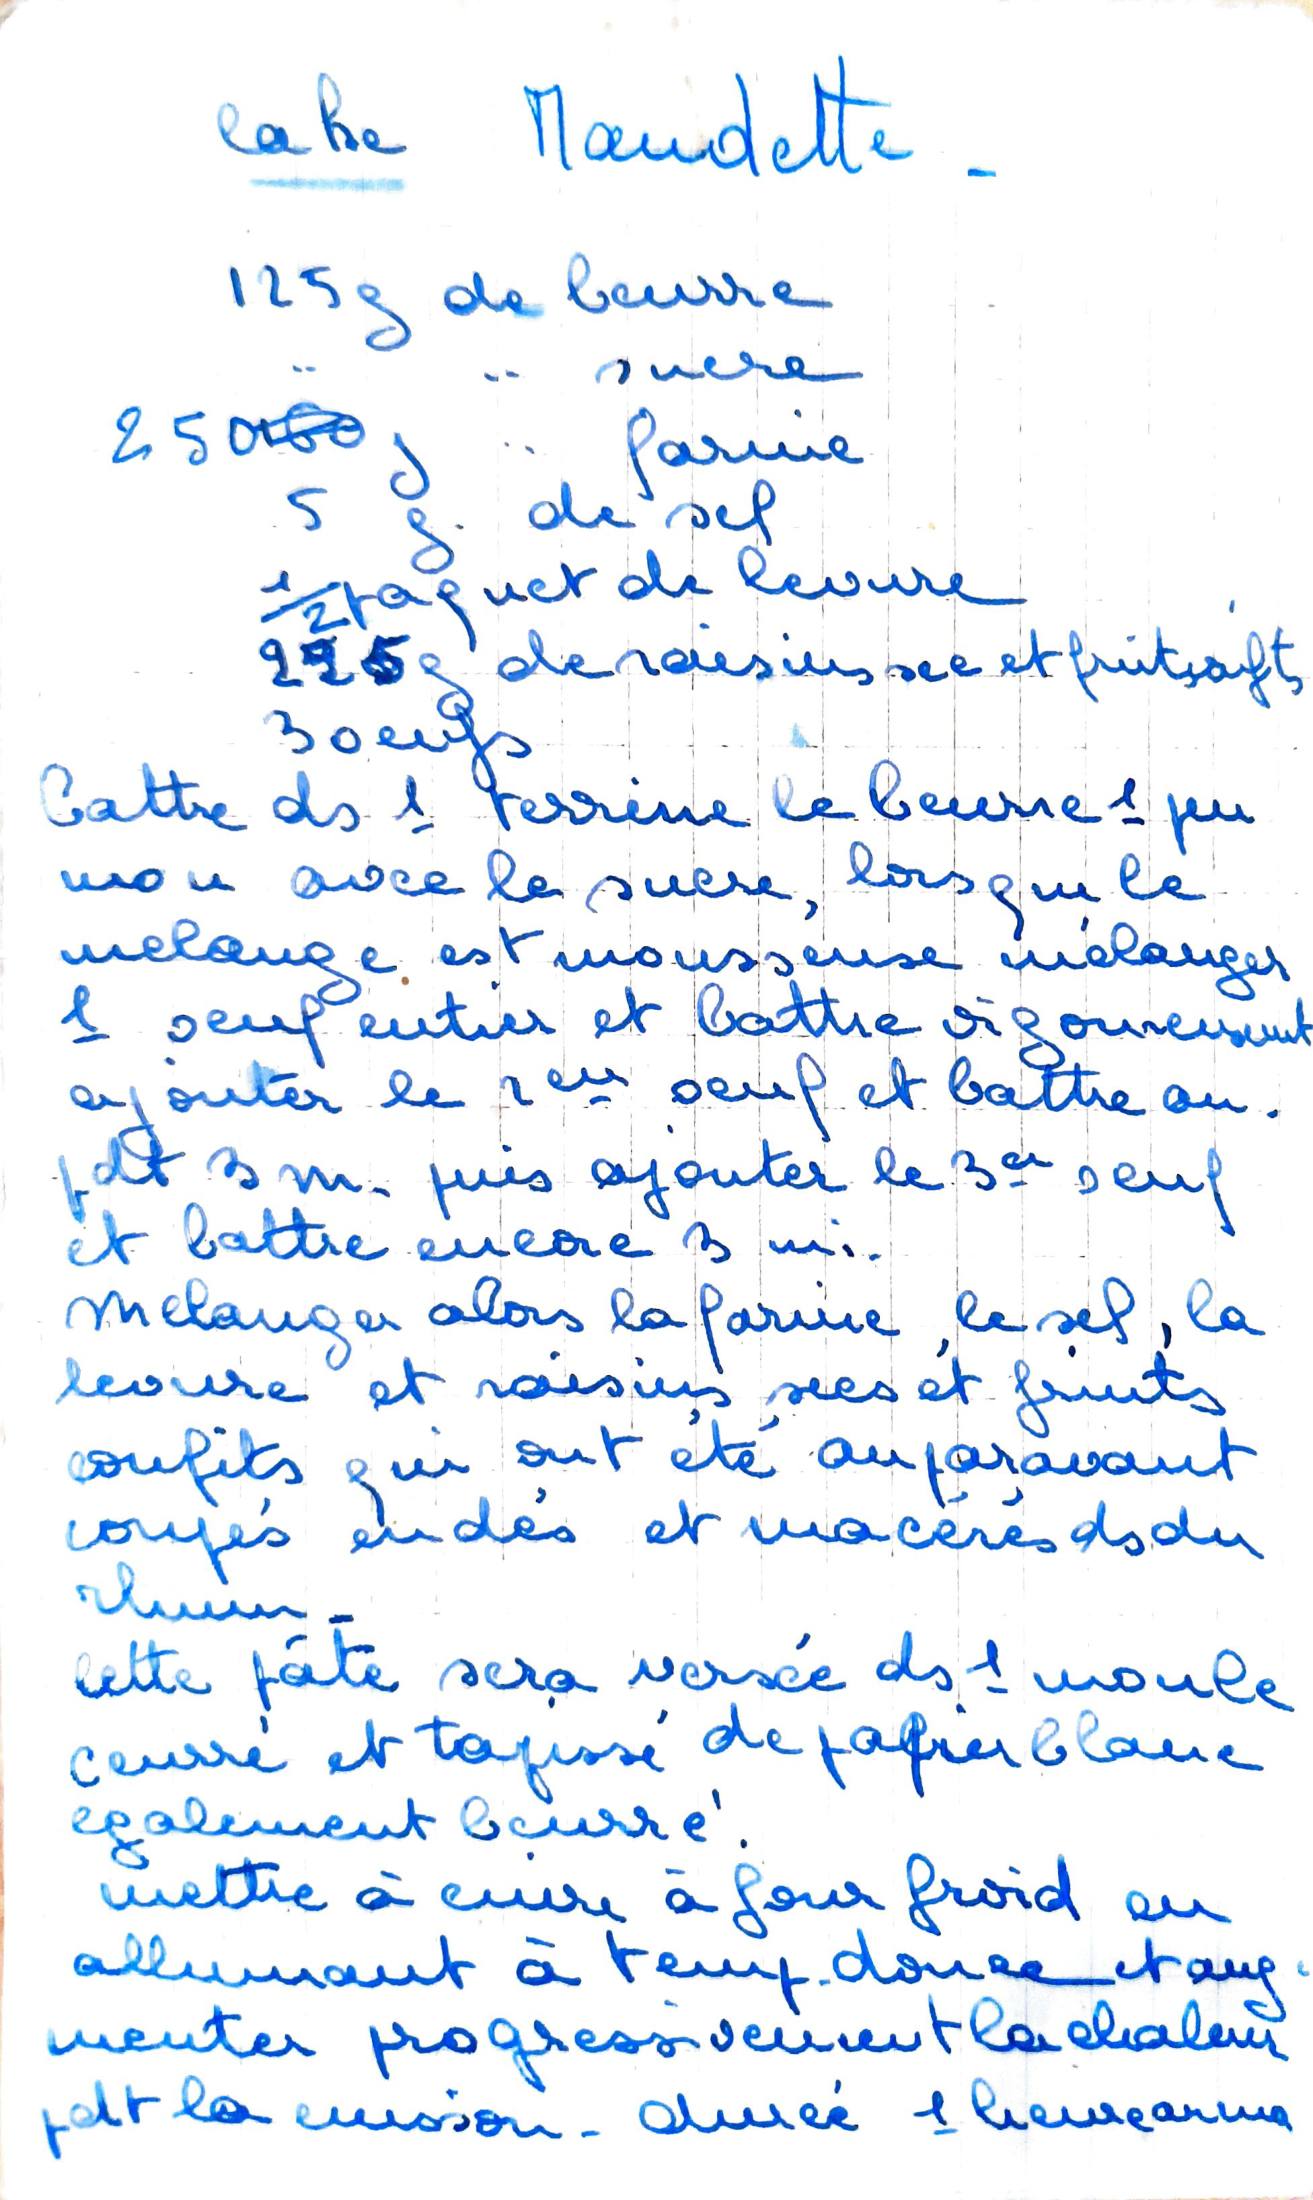 Cake Maudette -
125g de beurre
" " sucre
250 g " farine
5 g. de sel
1/2 paquet de levure
225g de raisins sec et fruits
3 oeufs
battre ds 1 terrine le beurre 1 peu
mou avec le sucre, lorsque le
melange est mousseuse mélanger
1 oeuf entier et battre vigoureusement
ajouter le 2em oeuf et battre
pdt 3 m. puis ajouter le 3em oeuf
et battre encore 3 m.
Melanger alors la farine, le sel, la
levure et raisins secs et fruits
confits qui ont été auparavant
coupés en dés et macérés ds du
rhum -
Cette pâte sera versée ds 1 moule
beurré et tapissé de papier blanc
egalement beurré.
mettre à cuire à four froid en
allumant à temp. douce et aug-
menter progressivement la chaleur
pdt la cuisson - durée 1 heure